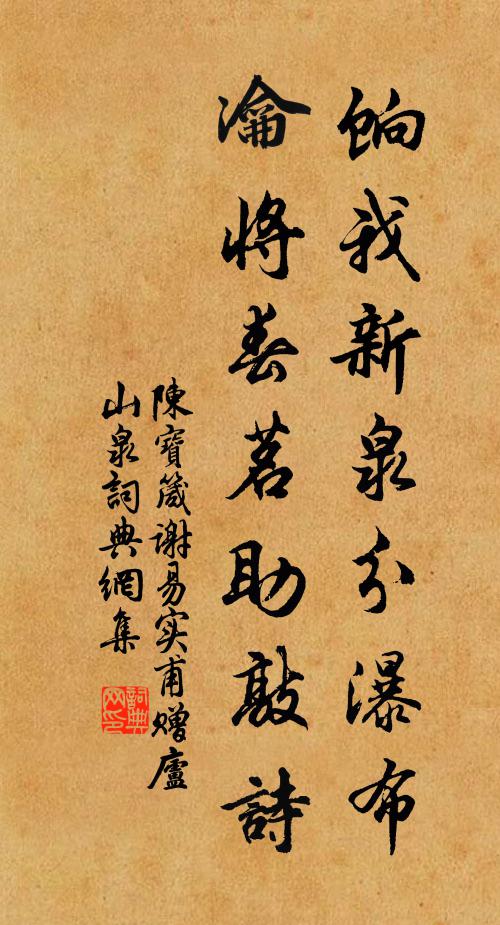 餉我新泉分瀑布
瀹將春茗助敲詩
陳寶箴謝易实甫赠廬
山泉詞典網集
詞典网印